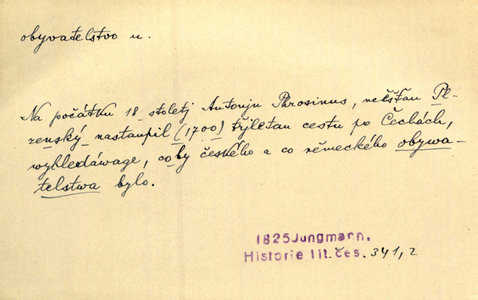 obywatelstwo n.
Na počátku 18 stoletj Antonju Prosinus, něšťan Pl-
zenský nastaupil (1700) tříletau cestu po Čechách,
wyhledáwage, coby českého a co německého obywa-
telstwa bylo.
1825 Jungmann,
Historie lit. čes. 341,2